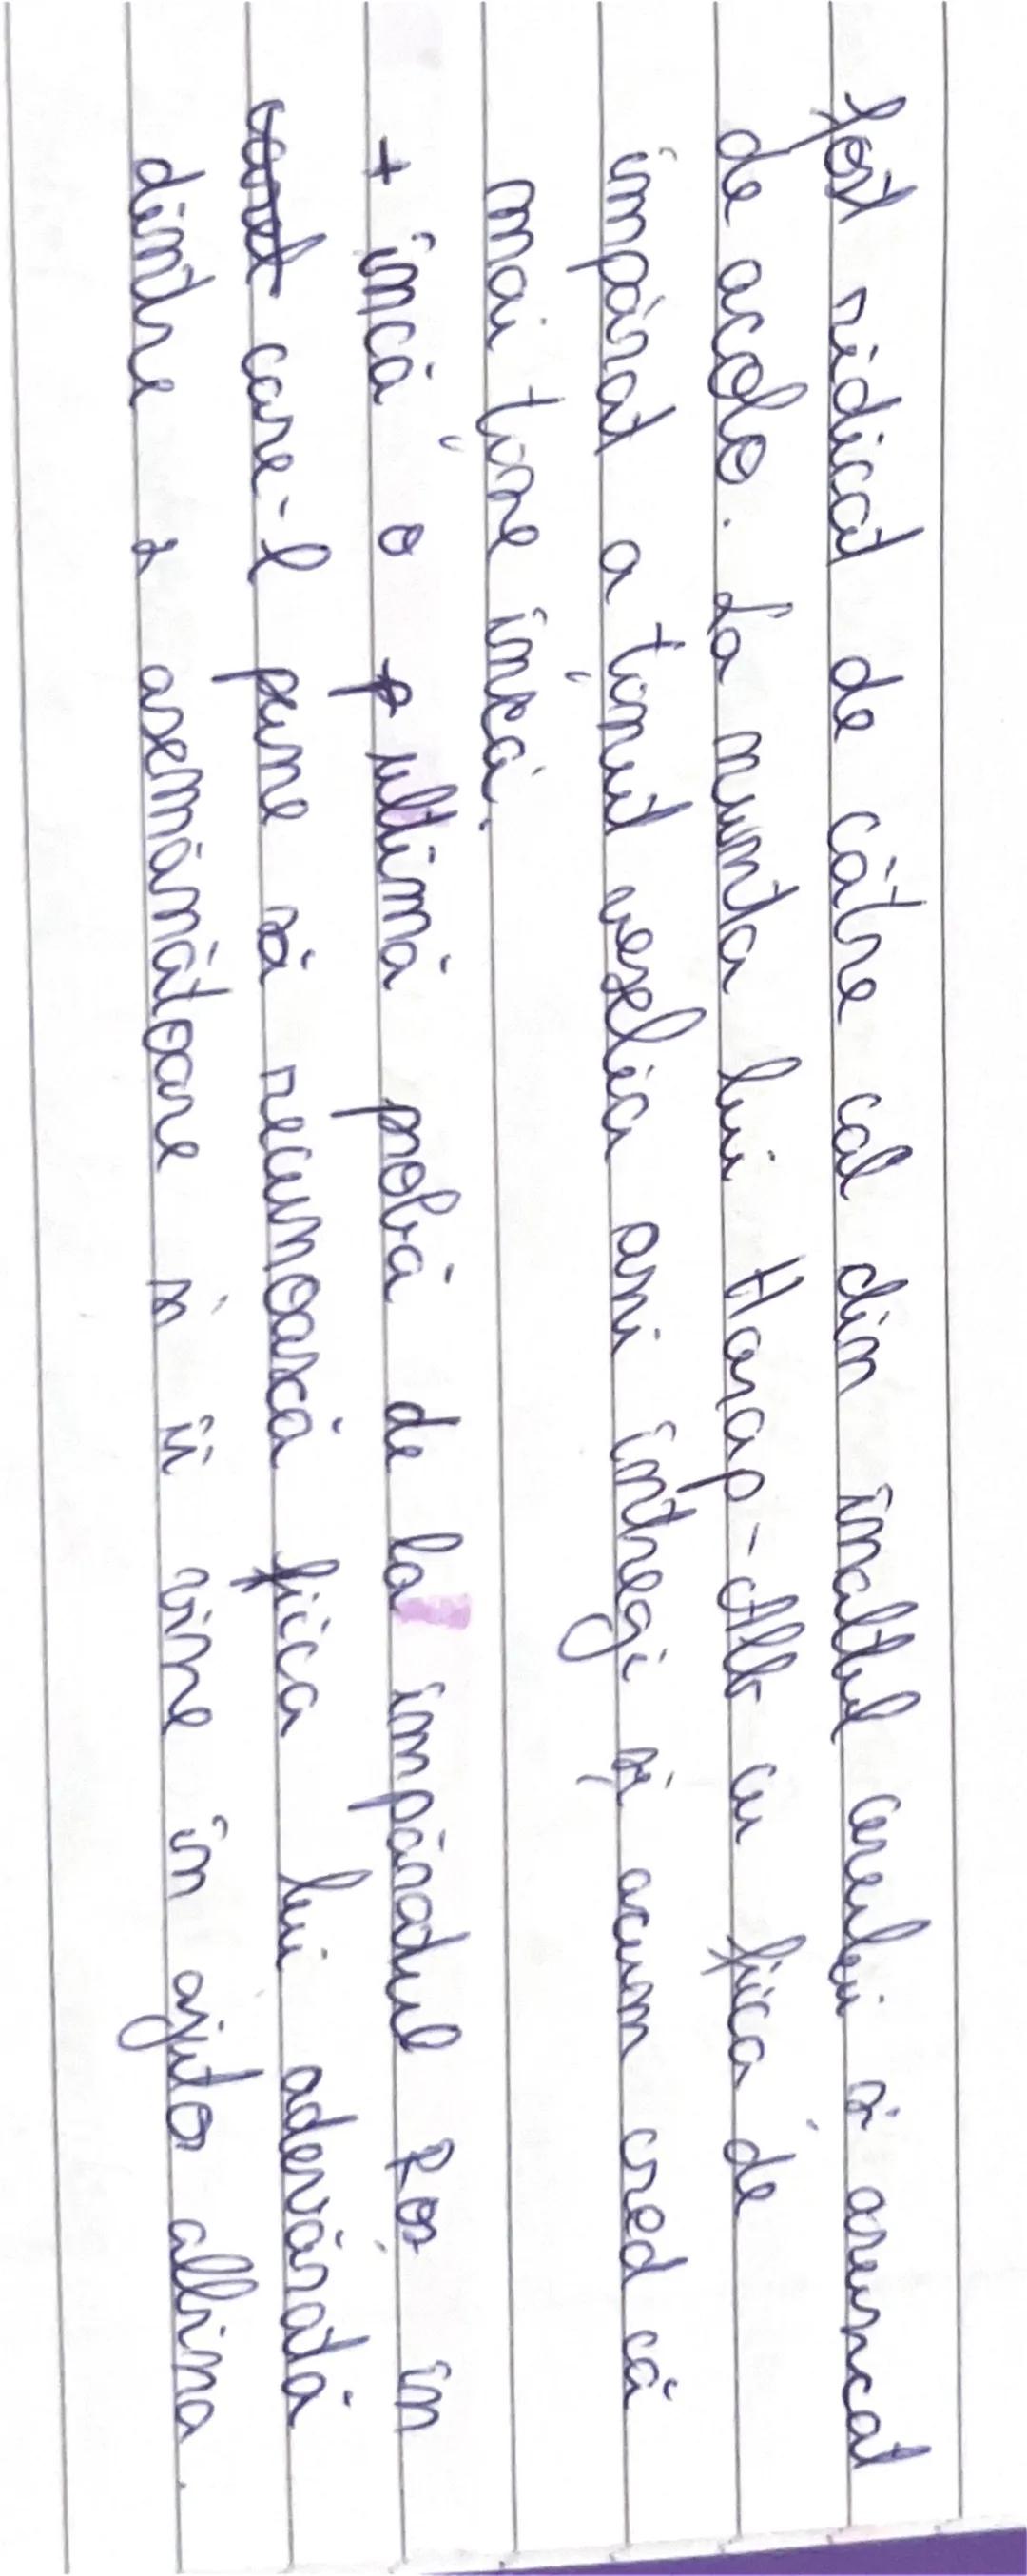 fost ridicat de către cal din înaltul cerului și aruncat
de acolo. La nunta lui Harap-Alb cu fiica de
împărat a ținut veselia ani întregi și acum cred că
mai ține încă.
+ încă o ultimă probă de la împăratul Roș în
care-l pune să recunoască fiica lui adevărată
dintre 2 asemănătoare și îi vine în ajuto albina.